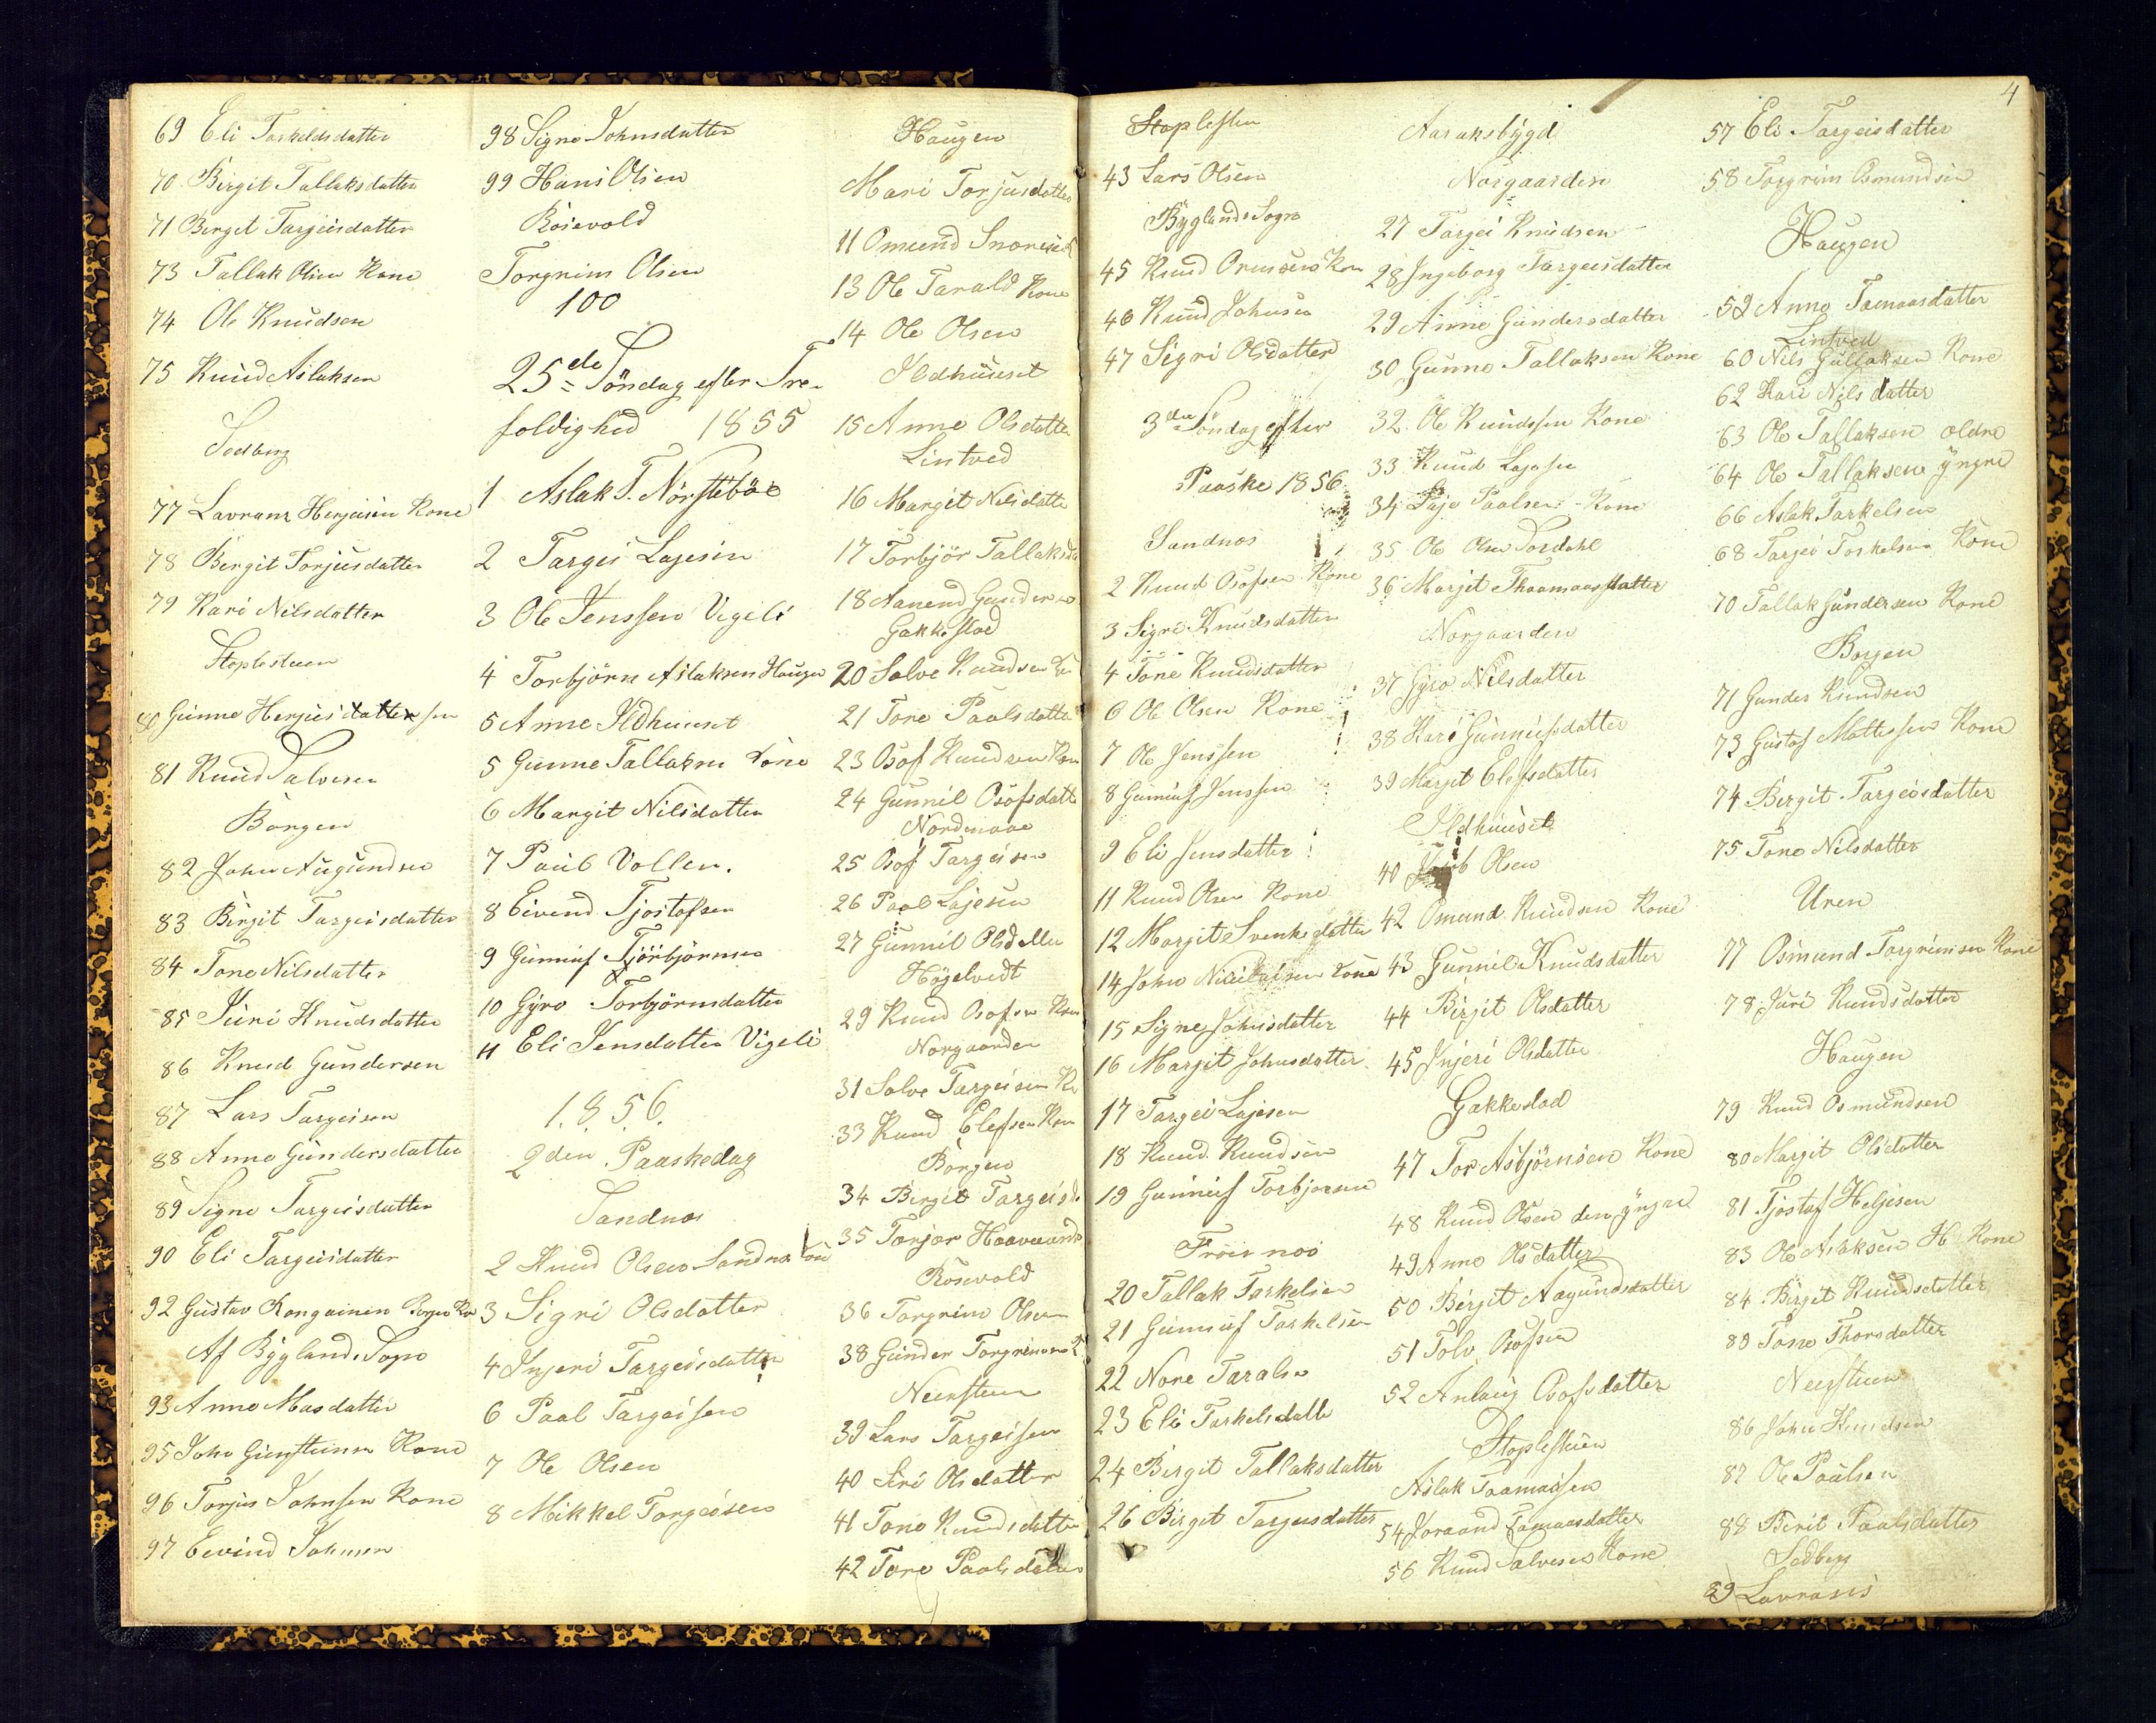 69 Eli Taskeldsdatter
70 Birgit Tallaksdatter
71 Birgit Targeisdatter
73 Tallak Olsen Kone
74 Ole Knudsen
75 Knud Aslaksen
Sedberg
77 Lavrans Herjusen Kone
78 Birgit Torjusdatter
79 Kari Nilsdatter
Stoplesteen
80 Gunne Herjusdatter sen
81 Knud Salvesen
Borgen
82 John Augundsen
83 Birgit Targeisdatter
84 Tone Nilsdatter
85 Siri Knudsdatter
86 Knud Gundersen
87 Lars Targeisen
88 Anne Gundersdatter
89 Signe Targeisdatter
90 Eli Targeisdatter
92 Gustav Borgen
Af Byglands Sogn
93 Anne Masdatter
95 John Kone
96 Torjus Johnsen Kone
97 Eivind Johnsen
98 Signe Johnsdatter
99 Hans Olsen
Rosevold
Torgrim Olsen
100
25de Söndag efter Tre-
foldighed 1855
1 Aslak T. Nörstebö
2 Targei Lajesen
3 Ole Jenssen Vigeli
4 Torbjörn Aslaksen Haugen
5 Anne Ildhuuset
5 Gunne Tallaksen Kone
6 Margit Nilsdatter
7 Paul Vollen.
8 Eivend Tjostofsen
9 Gunnuf Tjörbjörnsen
10 Gyro Torbjörnsdatter
11 Eli Jensdatter Vigeli
1.8.5.6.
2den Paaskedag
Sandnos
2 Knud Olsen Sandnos Kone
3 Sigri Olsdatter
4 Injeri Targeisdatter
6 Paal Targeisen
7 Ole Olsen
8 Mikkel Torgeisen
Haugen
Mari Torjusdatter
11 Omund
13 Ole Tarald Kone
14 Ole Olsen
Ildhuuset
15 Anne Olsdatter
Lintved
16 Margit Nilsdatte
17 Torbjör Tallaksda
18 Aanend
Gakkestad
20 Salve Knudsen
21 Tone Paalsdatte
23 Osof Knudsen Kon
24 Gunnil Osofsdatt
Nordenaae
25 Osof Targeisen
26 Paal Lajesen
27 Gunnil Olsdatter
Högelvedt
29 Knud Osofsen Kon
Norgaarden
31 Salve Targeisen Ko
33 Knud Elefsen Kon
Borgen
34 Birgit Targeisd
35 Torjer
Rosevold
36 Torgrim Olsen
38 Gunder Torgrimsen
Neersteen
39 Lars Targeisen
40 Siri Olsdatter
41 Tone Knudsdatter
42 Tore Paalsdatter
4
Stoplesten
43 Lars Olsen
Byglands Sogn
45 Knud Kon
46 Knud Johnsen
47 Sigri Olsdatter
3die Söndag efter
Paaske 1856
Sandnos
2 Knud Osofsen Kone
3 Sigri Knudsdatter
4 Tone Knudsdatter
6 Ole Olsen Kone
7 Ole Jenssen
8 Gunnuf Jenssen
9 Eli Jensdatter
11 Knud Olsen Kone
12 Margit Svenkedatter
14 John Kone
15 Signe Johnsdatter
16 Margit Johnsdatter
17 Targei Lajesen
18 Knud Knudsen
19 Gunnuf Torbjornsen
Froirnos
20 Tallak Tarkelsen
21 Gunnuf Tarkelsen
22 Nore Taralsen
23 Eli Tarkelsdatte
24 Birgit Tallaksdatter
26 Birgit Tarjusdatter
Aaraksbygd
Norgaarden
27 Tarjei Knudsen
28 Ingeborg Targeisdatter
29 Anne Gundersdatter
30 Gunne Tallaksen Kone
32. Ole Knudssen Kone
33 Knud Lajesen
34 Laje Paalsen Kone
35 Ole Olsen Dordahl
36 Margit Thaamaasdatter
Norgaarden
37 Gyro Nilsdatter
38 Kari Gunnufsdatter
39 Margit Elefsdatter
Ildhuuset
40 Olsen
42 Osmund Knudsen Kone
43 Gunnil Knudsdatter
44 Birgit Olsdatter
45 Injeri Olsdatter
Gakkestad
47 Tor Asbjörnsen Kone
48 Knud Olsen den yngre
49 Anne Olsdatter
50 Birgit Aagundsdatter
51 Tolv Osofsen
52 Anlaug Osofsdatter
Stoplesteen
Aslak Taamaasen
54 Joraand Tamaasdatter
56 Knud Salvesen Kone
57 Eli Targeisdatter
58 Torgrim Osmundsen
Haugen
59 Anne Tamaasdatter
Lintved
60 Nils Gullaksen Kone
62 Kari Nilsdatter
63 Ole Tallaksen oldre
64 Ole Tallaksen yngre
66 Aslak Tarkelsen
68 Tarjei Torkelsen Kone
70 Tallak Gundersen Kone
Borgen
71 Gunder Knudsen
73 Gustaf Mattessen Kone
74 Birgit Targeisdatter
75 Tone Nilsdatter
Uren
77 Osmund Torgrimsen Kone
78 Juri Knudsdatter
Haugen
79 Knud Osmundsen
80 Margit Olsdatter
81 Tjostaf Heljesen
83 Ole Aslaksen H Kone
84 Birgit Knudsdatter
80 Tone Thorsdatter
Neersteen
86 John Knudsen
87 Ole Paulsen
88 Berit Paalsdatter
Sedberg
89 Lavrasis